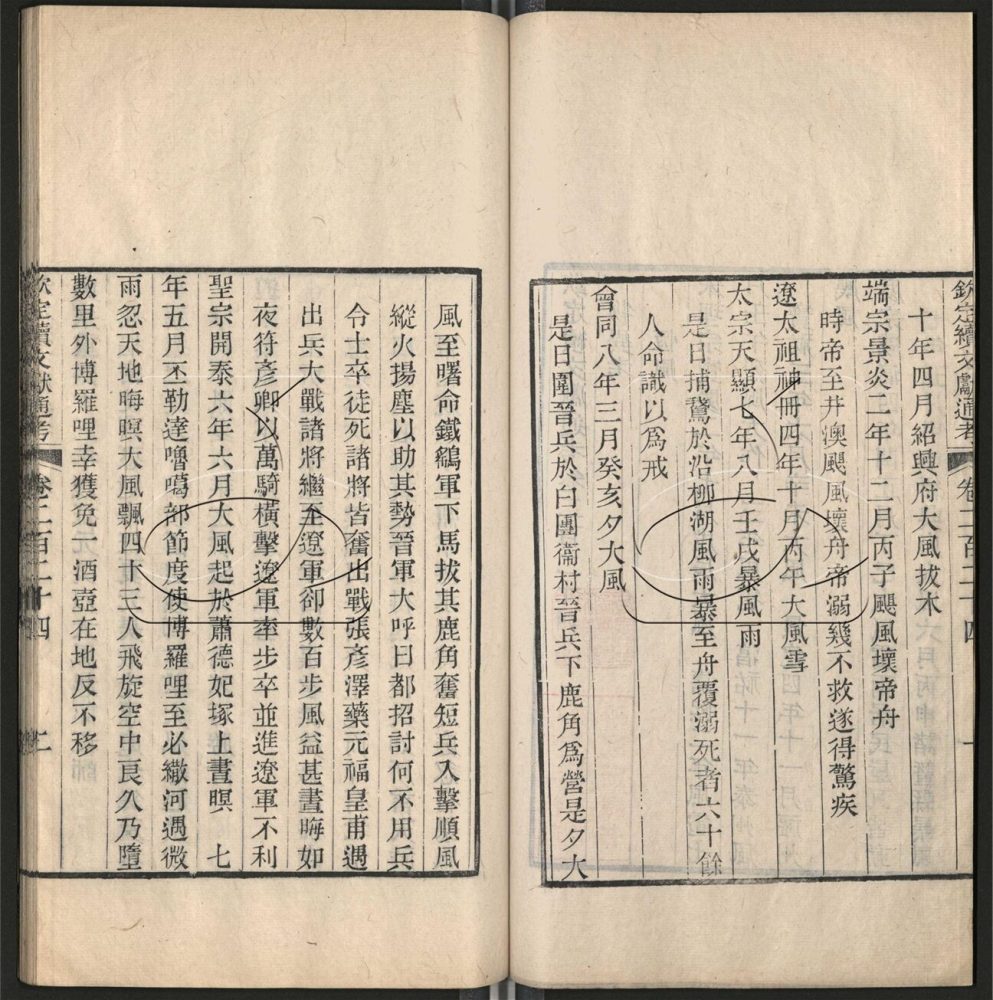 欽定續文獻通考 卷二百二十四 一
十年四月紹興府大風拔木
端宗景炎二年十二月丙子颶風壞帝舟
時帝至井澳颶風壞舟帝溺幾不救遂得驚疾
遼太祖神冊四年十月丙午大風雪
太宗天顯七年八月壬戌暴風雨
是日捕鵞於沿柳湖風雨暴至舟覆溺死者六十餘
人命識以爲戒
會同八年三月癸亥夕大風
是日圍晉兵於白團衞村晉兵下鹿角爲營是夕大
風至曙命鐵鷂軍下馬拔其鹿角奮短兵入擊順風
縱火揚塵以助其勢晉軍大呼曰都招討何不用兵
令士卒徒死諸將皆奮出戰張彥澤藥元福皇甫遇
出兵大戰諸將繼至遼軍卻數百步風益甚晝晦如
夜符彥卿以萬騎橫擊遼軍率步卒並進遼軍不利
聖宗開泰六年六月大風起於蕭德妃塚上晝暝 七
年五月丕勒達嚕噶部節度使博羅哩至必繖河遇微
雨忽天地晦暝大風飄四十三人飛旋空中良久乃墮
數里外博羅哩幸獲免一酒壺在地反不移
欽定續文獻通考 卷二百二十四 二